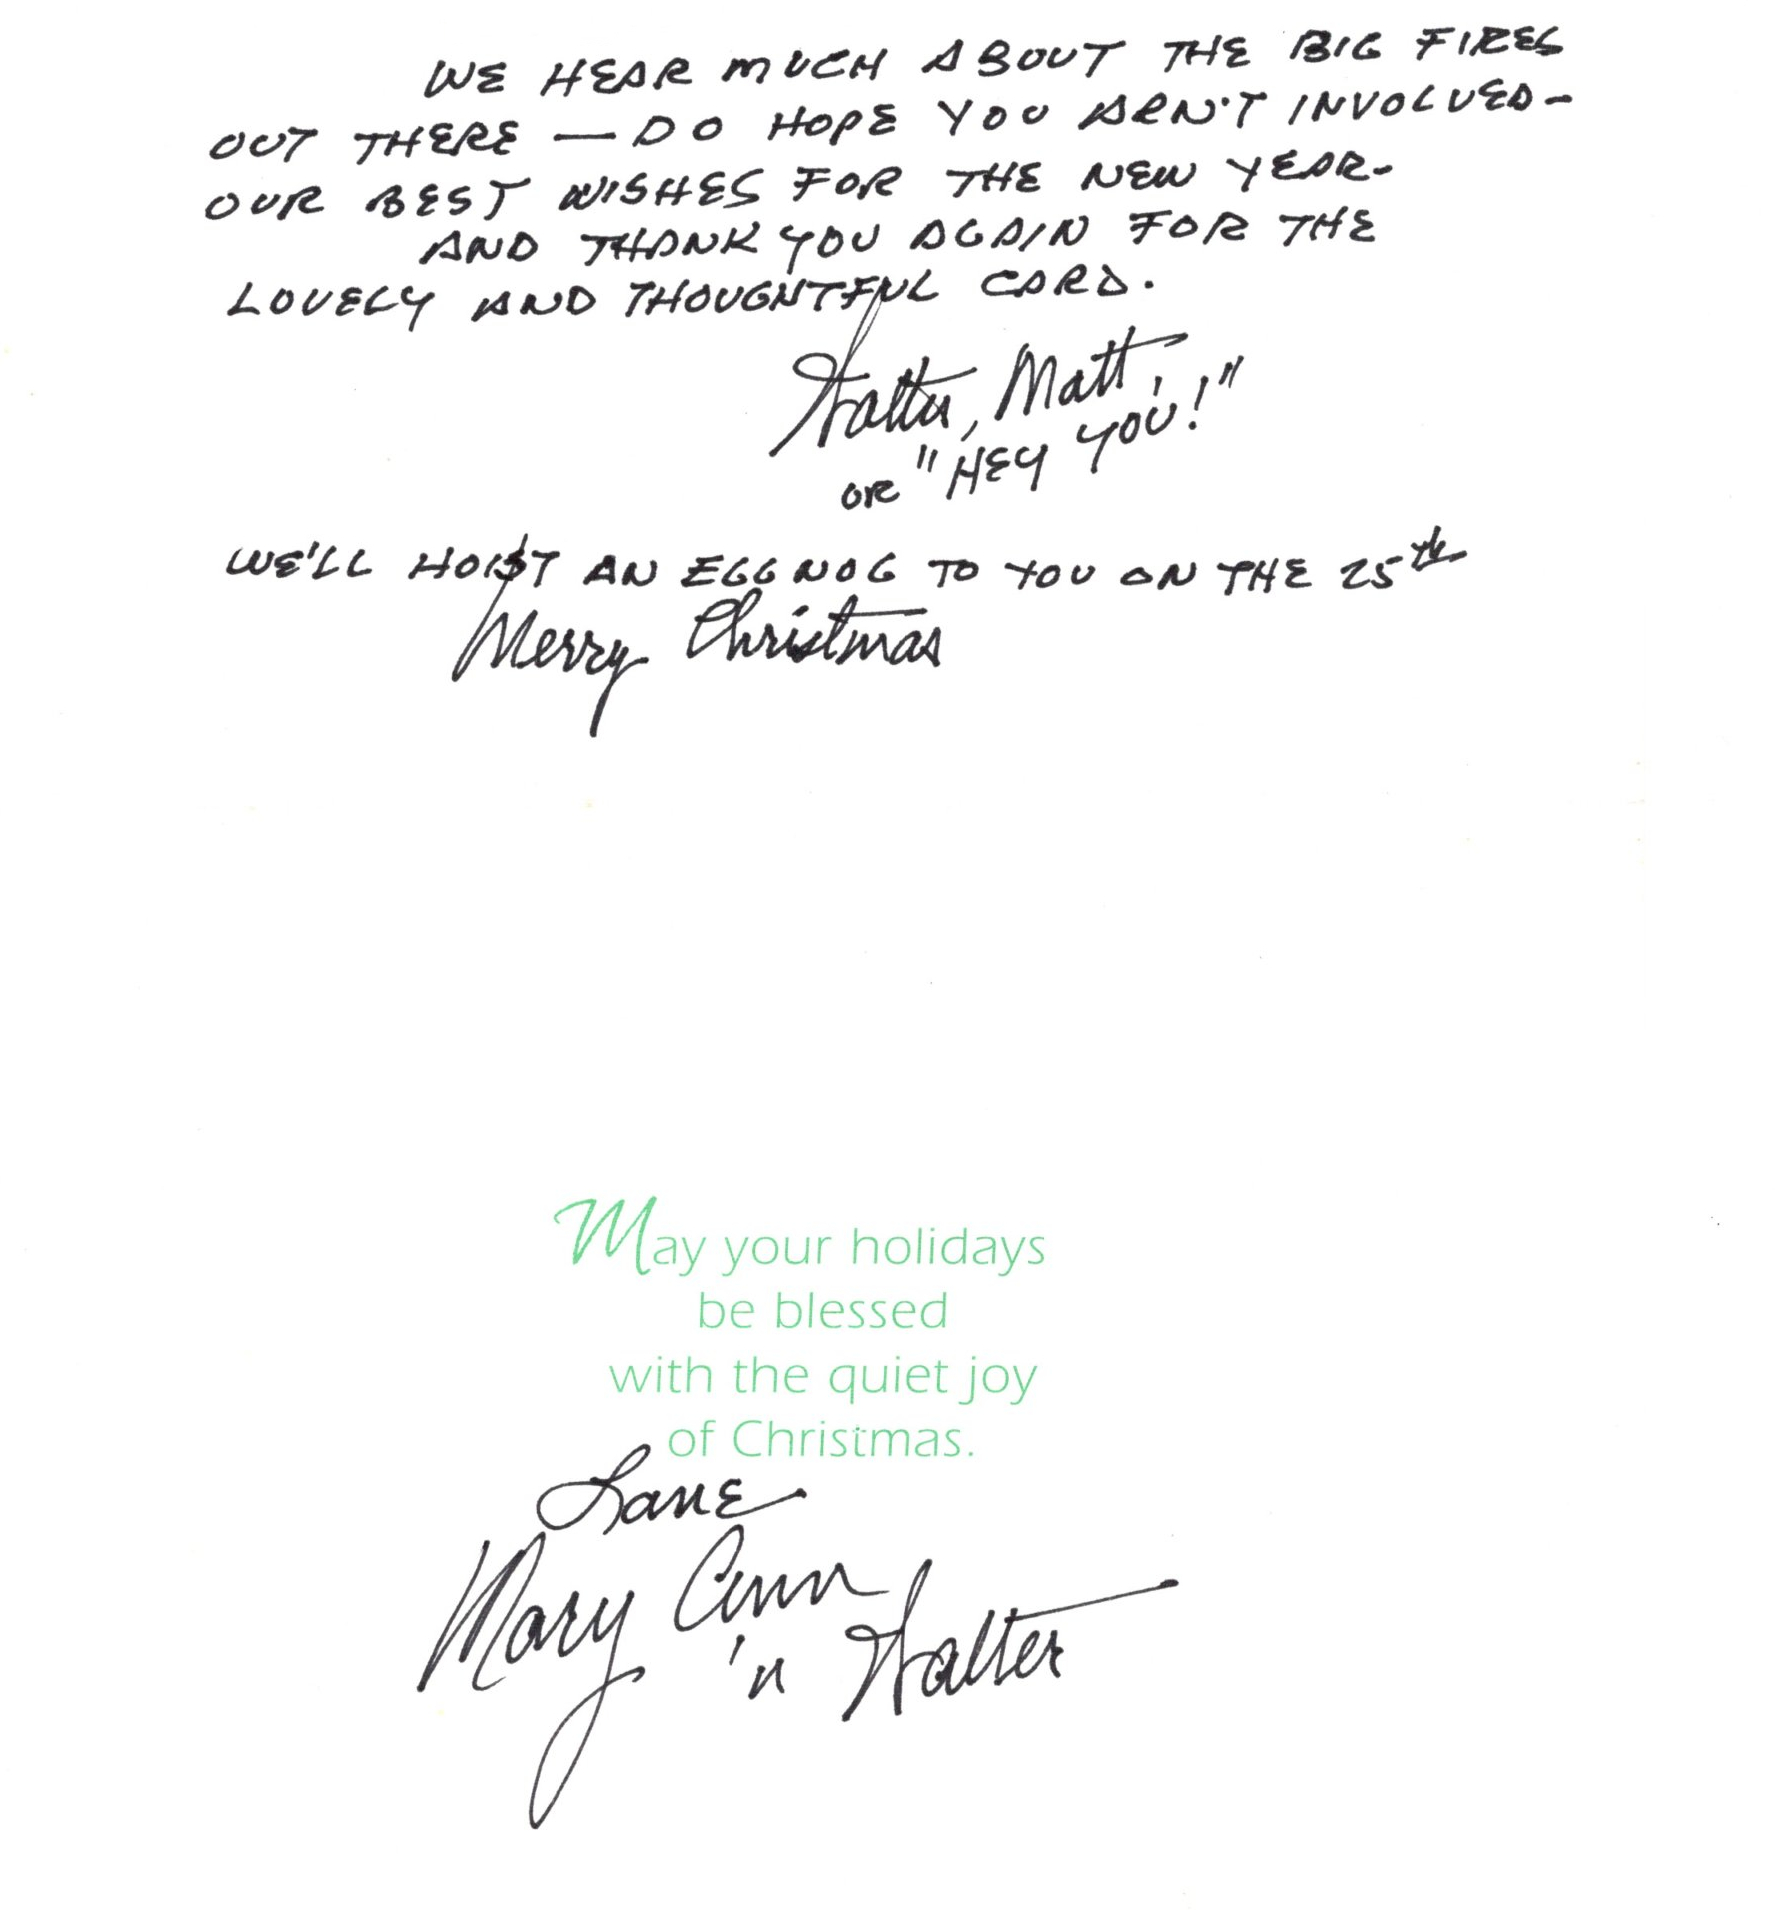 WE HEAR MUCH ABOUT THE BIG FIRES
OUT THERE — DO HOPE YOU ARN'T INVOLVED-
OUR BEST WISHES FOR THE NEW YEAR-
AND THANK YOU AGAIN FOR THE
LOVELY AND THOUGHTFUL CARD.
Walter, Matt,
OR "HEY YOU!"
WE'LL HOIST AN EGG NOG TO YOU ON THE 25th
Merry Christmas
May your holidays
be blessed
with the quiet joy
of Christmas.
Love
Mary Ann
'n Walter